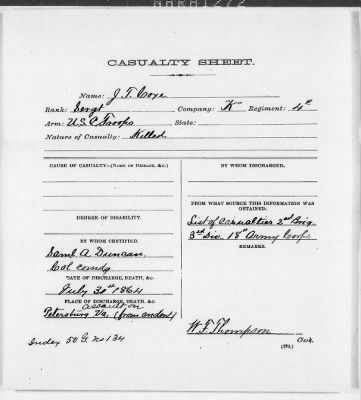 CASUALTY SHEET.
Name: J. T. Coxe
Rank: Sergt Company: "K" Regiment: 4th
Arm: U.S.C. Troops State:
Nature of Casualty: Killed
CAUSE OF CASUALTY—(NAME OF DISEASE, &C.)
DEGREE OF DISABILITY.
BY WHOM CERTIFIED.
Saml A. Duncan
Col comdg
DATE OF DISCHARGE, DEATH, &C.
July 31st 1864
PLACE OF DISCHARGE, DEATH, &C.
assault on
Petersburg Va. (from
Index 50 G. No 134
BY WHOM DISCHARGED.
FROM WHAT SOURCE THIS INFORMATION WAS
OBTAINED.
List of Casualties 2nd Brig.
3rd Div. 18th Army Corps
REMARKS.
W. F. Thompson
Clerk.